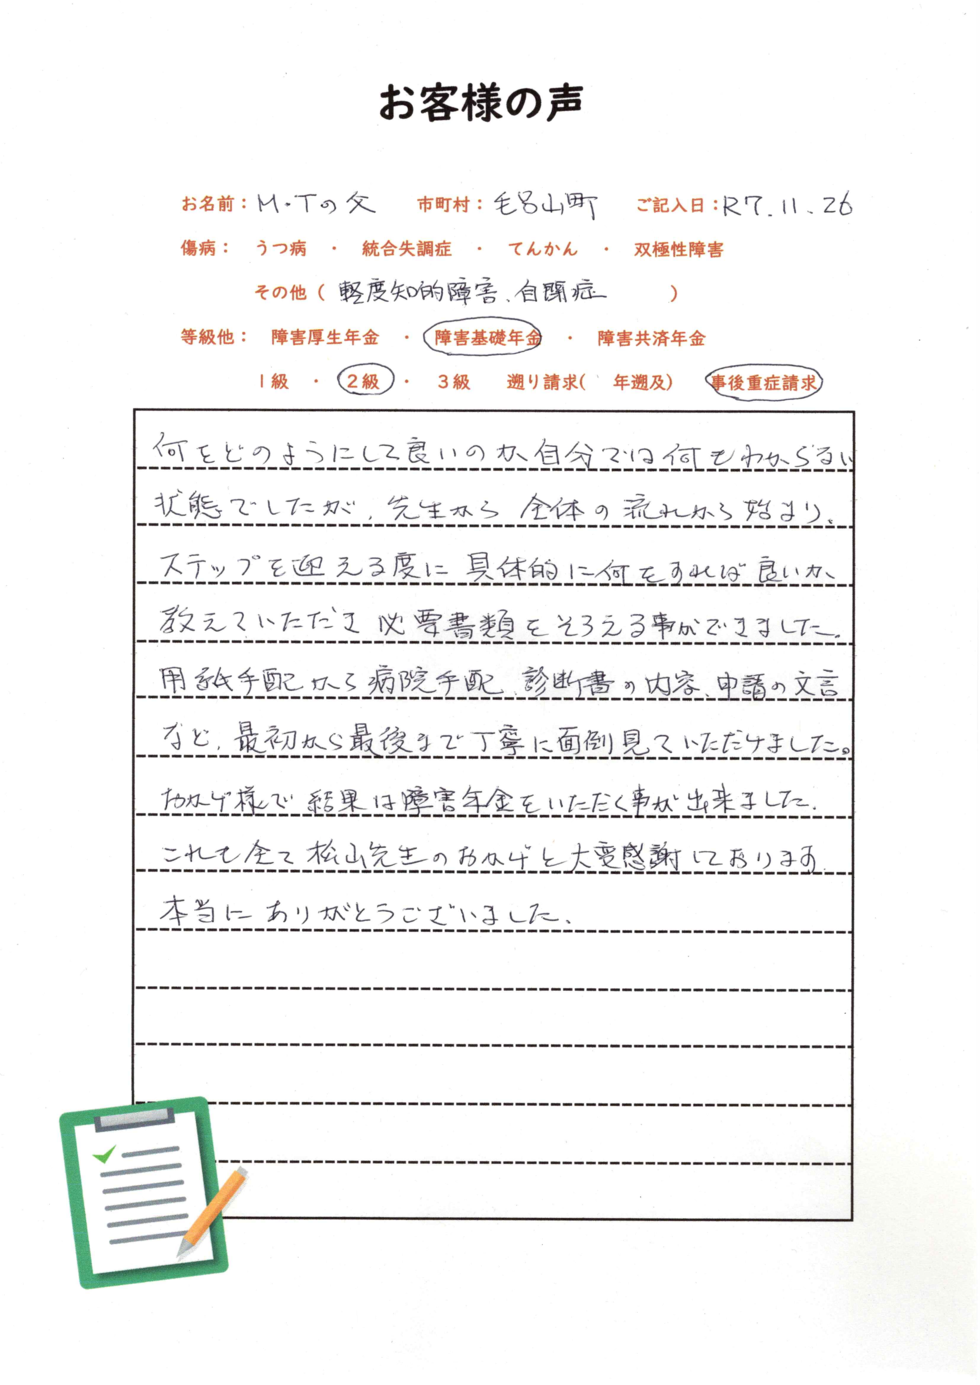 お客様の声
お名前：M・Tの父 市町村：毛呂山町 ご記入日：R7.11.26
傷病： うつ病 ・ 統合失調症 ・ てんかん ・ 双極性障害
その他（軽度知的障害、自閉症 ）
等級他： 障害厚生年金 ・ 障害基礎年金 ・ 障害共済年金
1級 ・ 2級 ・ 3級 遡り請求( 年遡及) 事後重症請求
何をどのようにして良いのか、自分では何もわからない
状態でしたが、先生から全体の流れから始まり、
ステップを迎える度に具体的に何をすれば良いか、
教えていただき必要書類をそろえる事ができました。
用紙手配から病院手配、診断書の内容、申請の文言
など、最初から最後まで丁寧に面倒見ていただけました。
おかげ様で結果は障害年金をいただく事が出来ました。
これも全て松山先生のおかげと大変感謝しております
本当にありがとうございました。